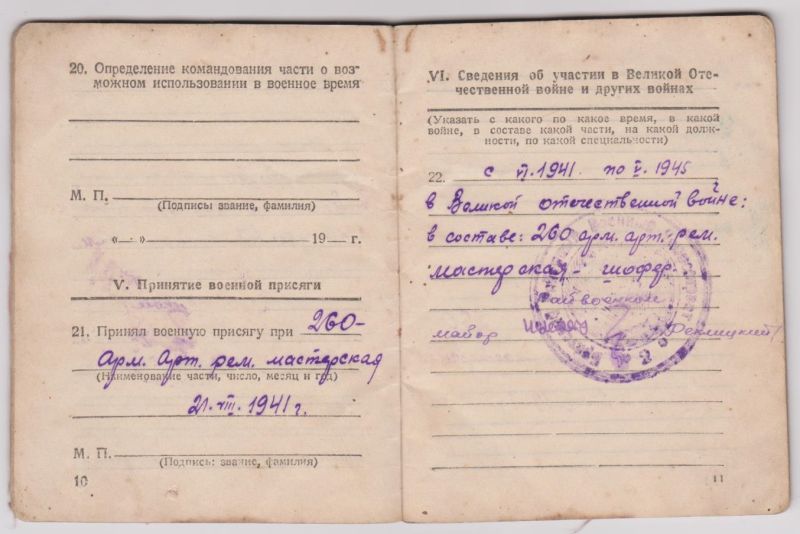 20. Определение командования части о воз-
можном использовании в военное время
М. П.
(Подписы звание, фамилия)
«—» 19 г.
V. Принятие военной присяги
21. Принял военную присягу при 260-
Арм. Арт. рем. мастерская
(Наименование части, число, месяц и год)
21. VIII. 1941 г.
М. П.
(Подпись: звание, фамилия)
10
VI. Сведения об участии в Великой Оте-
чественной войне и других войнах
(Указать с какого по какое время, в какой
войне, в составе какой части, на какой долж-
ности, по какой специальности)
22. с VI. 1941. по V. 1945
в Великой отечественной войне:
в составе: 260 арм. арт. рем.
мастерская - шофер.
Райвоенком
майор
11